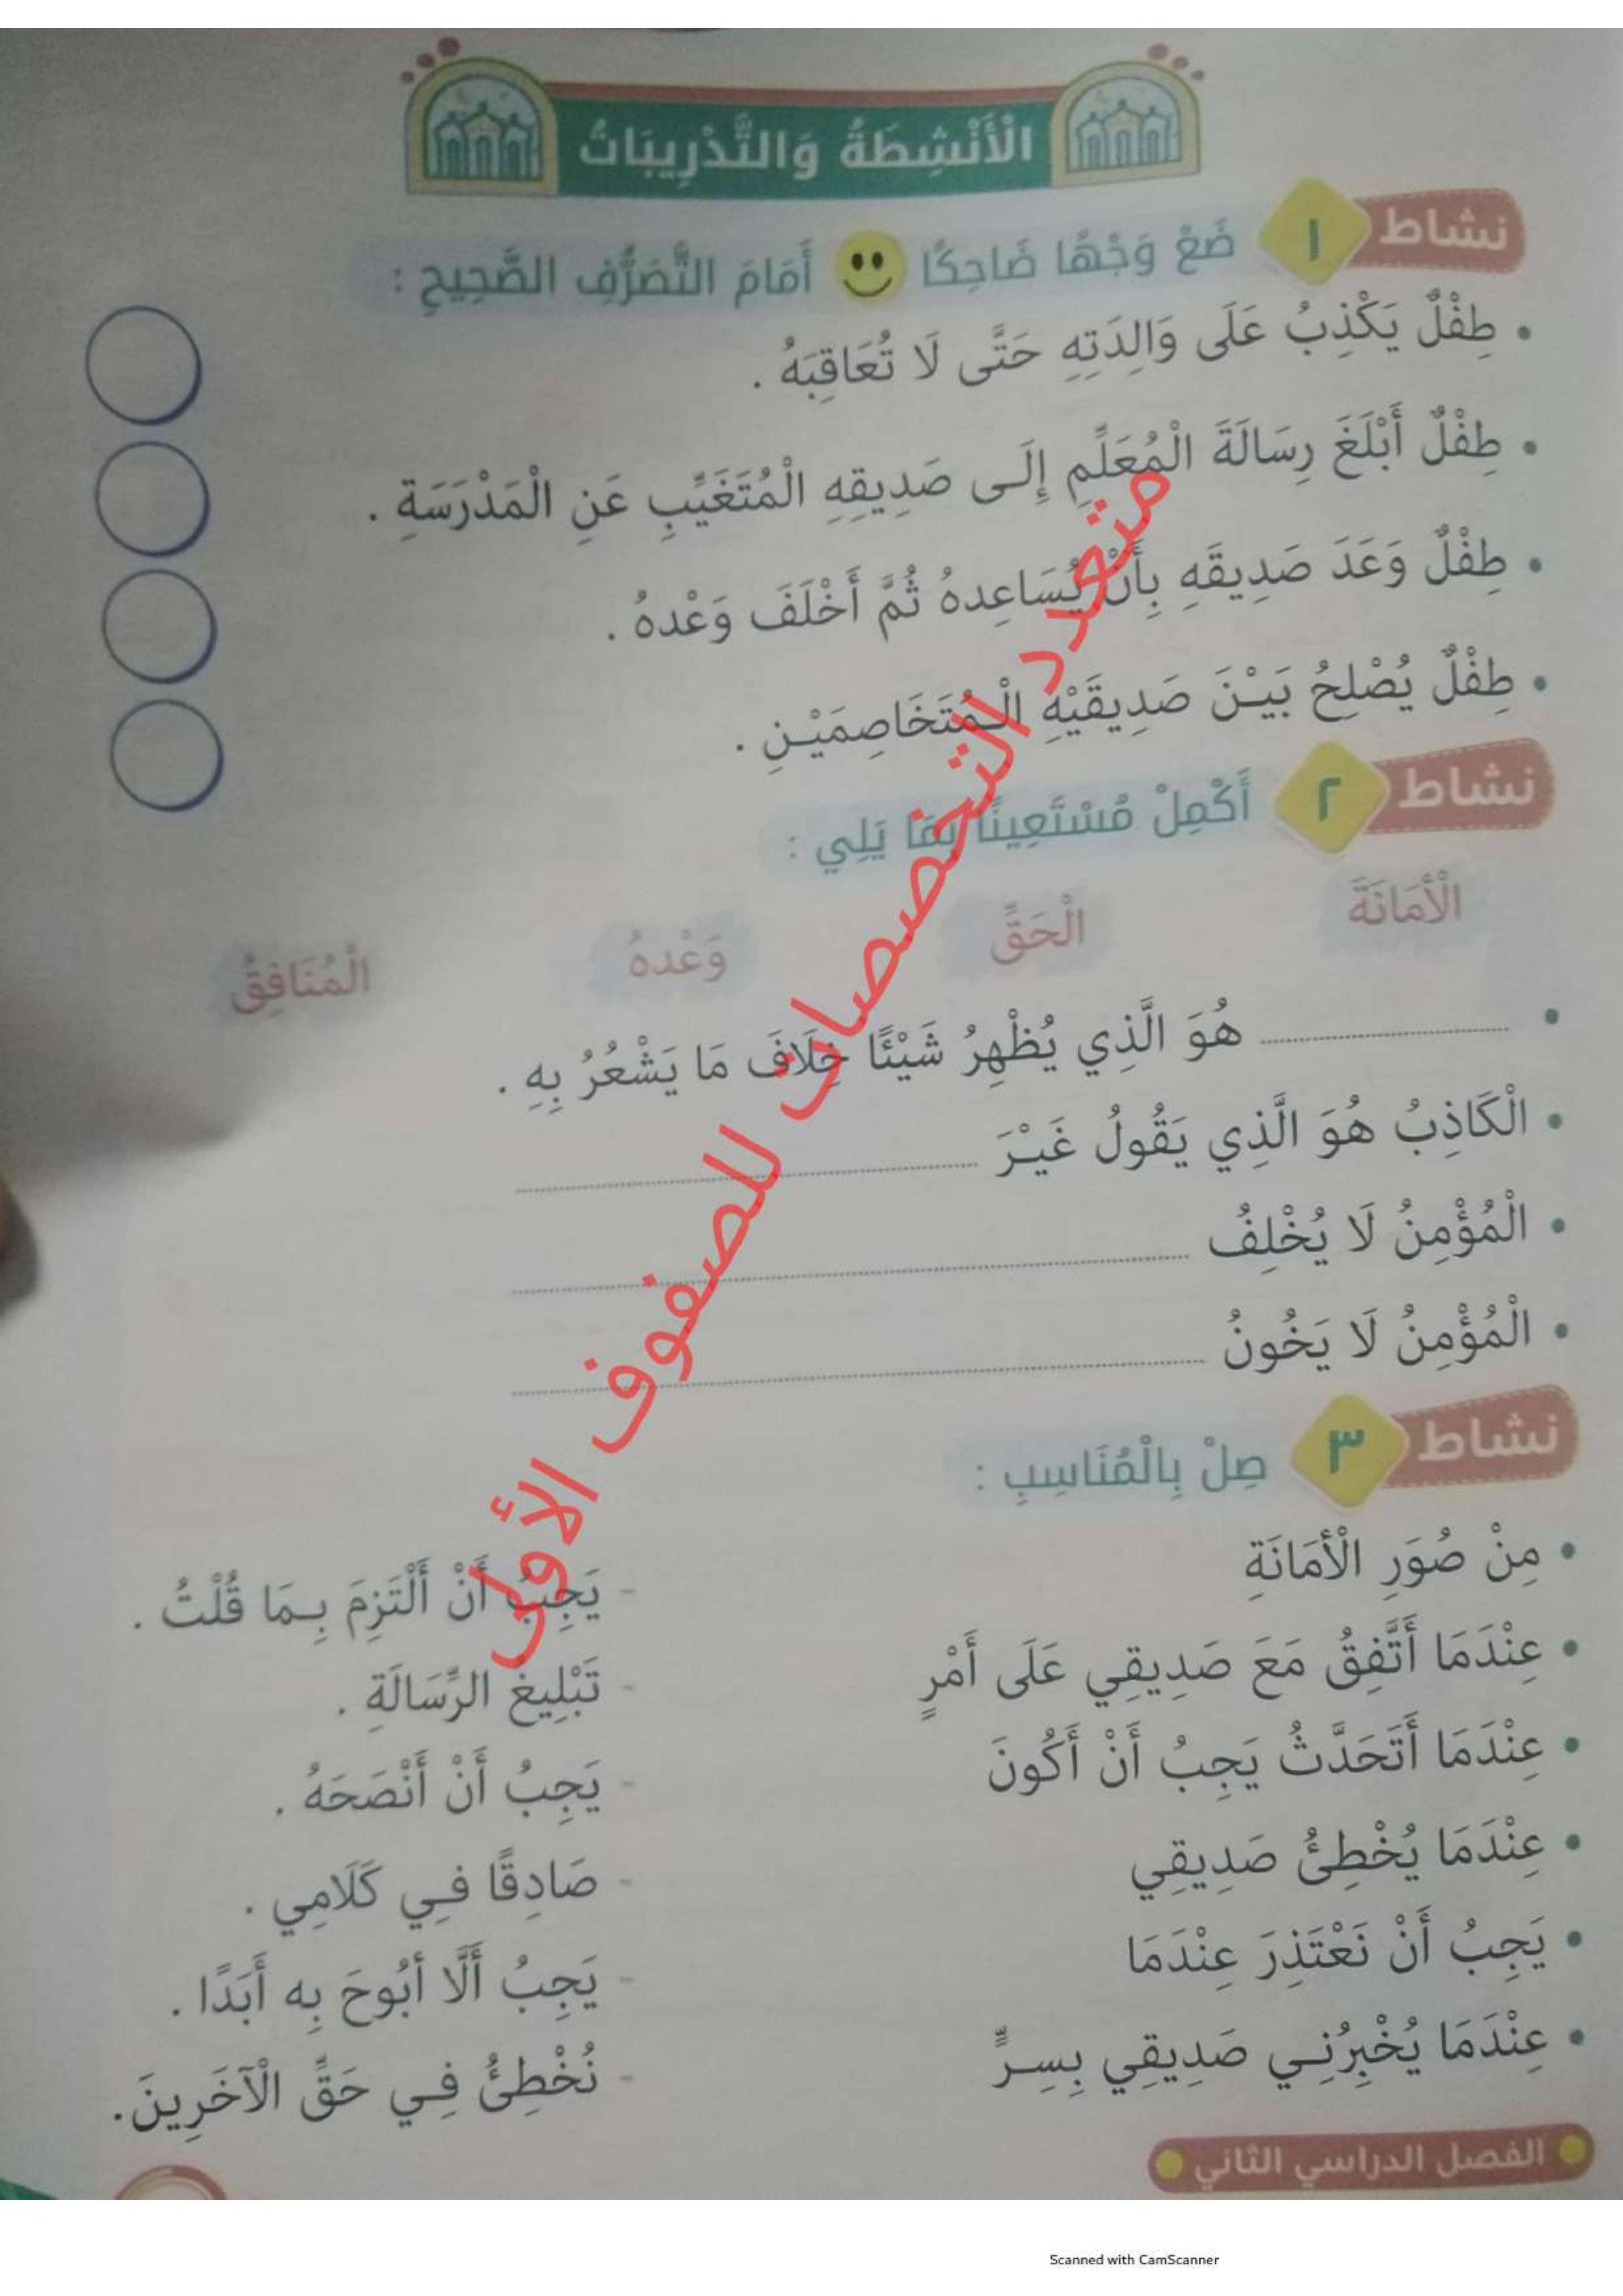 الْأَنْشِطَةُ وَالتَّدْرِيبَاتُ
نشاط ١ ضَعْ وَجْهًا ضَاحِكًا أَمَامَ التَّصَرُّفِ الصَّحِيحِ :
• طِفْلٌ يَكْذِبُ عَلَى وَالِدَتِهِ حَتَّى لَا تُعَاقِبَهُ .
• طِفْلٌ أَبْلَغَ رِسَالَةَ الْمُعَلِّمِ إِلَى صَدِيقِهِ الْمُتَغَيِّبِ عَنِ الْمَدْرَسَةِ .
• طِفْلٌ وَعَدَ صَدِيقَهِ بِأَنْ يُسَاعِدهُ ثُمَّ أَخْلَفَ وَعْدهُ .
• طِفْلٌ يُصْلِحُ بَيْنَ صَدِيقَيْهِ الْمُتَخَاصِمَيْنِ .
نشاط ٢ أَكْمِلْ مُسْتَعِينًا بِمَا يَلِي :
الْأَمَانَةَ الْحَقِّ وَعْدهُ الْمُنَافِقُ
• .......... هُوَ الَّذِي يُظْهِرُ شَيْئًا خِلَافَ مَا يَشْعُرُ بِهِ .
• الْكَاذِبُ هُوَ الَّذِي يَقُولُ غَيْرَ ..........
• الْمُؤْمِنُ لَا يُخْلِفُ ..........
• الْمُؤْمِنُ لَا يَخُونُ ..........
نشاط ٣ صِلْ بِالْمُنَاسِبِ :
• مِنْ صُوَرِ الْأَمَانَةِ - يَجِبُ أَنْ أَلْتَزِمَ بِمَا قُلْتُ .
• عِنْدَمَا أَتَّفِقُ مَعَ صَدِيقِي عَلَى أَمْرٍ - تَبْلِيغُ الرِّسَالَةِ .
• عِنْدَمَا أَتَحَدَّثُ يَجِبُ أَنْ أَكُونَ - يَجِبُ أَنْ أَنْصَحَهُ .
• عِنْدَمَا يُخْطِئُ صَدِيقِي - صَادِقًا فِي كَلَامِي .
• يَجِبُ أَنْ نَعْتَذِرَ عِنْدَمَا - يَجِبُ أَلَّا أَبُوحَ بِه أَبَدًا .
• عِنْدَمَا يُخْبِرُنِي صَدِيقِي بِسِرٍّ - نُخْطِئُ فِي حَقِّ الْآخَرِينَ.
الفصل الدراسي الثاني
متعدد التخصصات للصفوف الأولى
Scanned with CamScanner